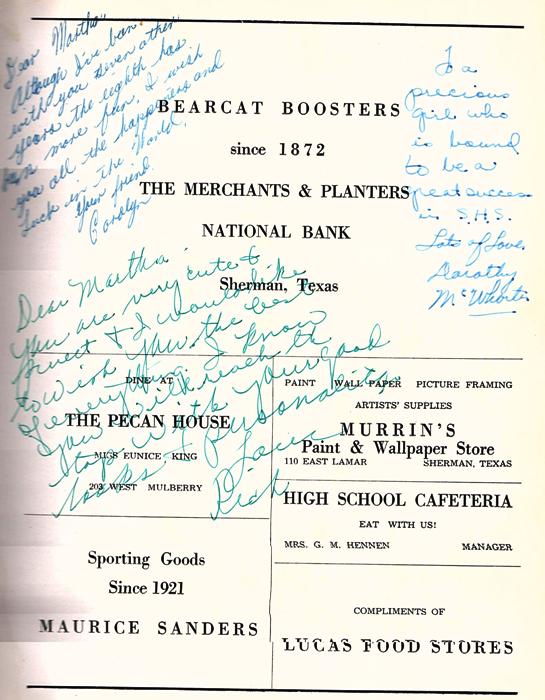 Dear Martha,
Altough I've ban
with you seven other
years the eighth has
ban more fun. I wish
you all the happiness and
luck in the World.
Your friend,
Carolyn
To a
precious
girl who
is bound
to be a
great success
in S.H.S.
Lots of Love,
Dorothy
McWhorter
BEARCAT BOOSTERS
since 1872
THE MERCHANTS & PLANTERS
NATIONAL BANK
Sherman, Texas
Dear Martha
You are very cute &
sweet & I would like
to wish you the best
of everything. I know
you will reach the
top with your good
looks & personality
Love
Rich
DINE AT
THE PECAN HOUSE
MISS EUNICE KING
203 WEST MULBERRY
PAINT WALL PAPER PICTURE FRAMING
ARTISTS' SUPPLIES
MURRIN'S
Paint & Wallpaper Store
110 EAST LAMAR SHERMAN, TEXAS
HIGH SCHOOL CAFETERIA
EAT WITH US!
MRS. G. M. HENNEN MANAGER
Sporting Goods
Since 1921
MAURICE SANDERS
COMPLIMENTS OF
LUCAS FOOD STORES